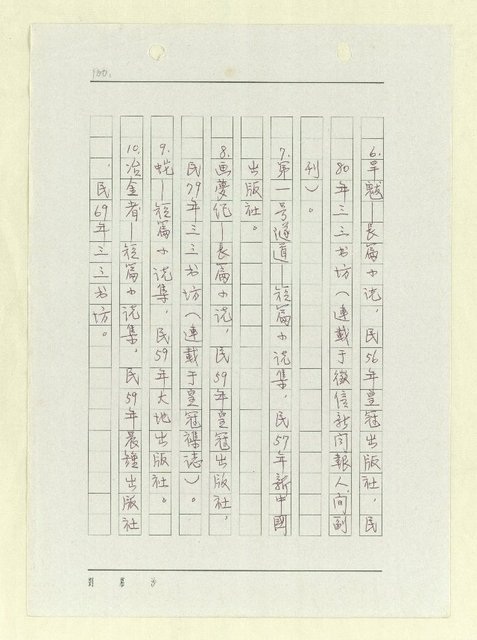 100.
6.旱魃—長篇小说，民56年皇冠出版社，民
80年三三书坊（連載于徵信新闻報人间副
刊）。
7.第一号隧道—短篇小说集，民57年新中國
出版社。
8.画夢纪—長篇小说，民59年皇冠出版社，
民79年三三书坊（連載于皇冠雜誌）。
9.蛇—短篇小说集，民59年大地出版社。
10.冶金者—短篇小说集，民59年晨鐘出版社
，民69年三三书坊。
劉慕沙